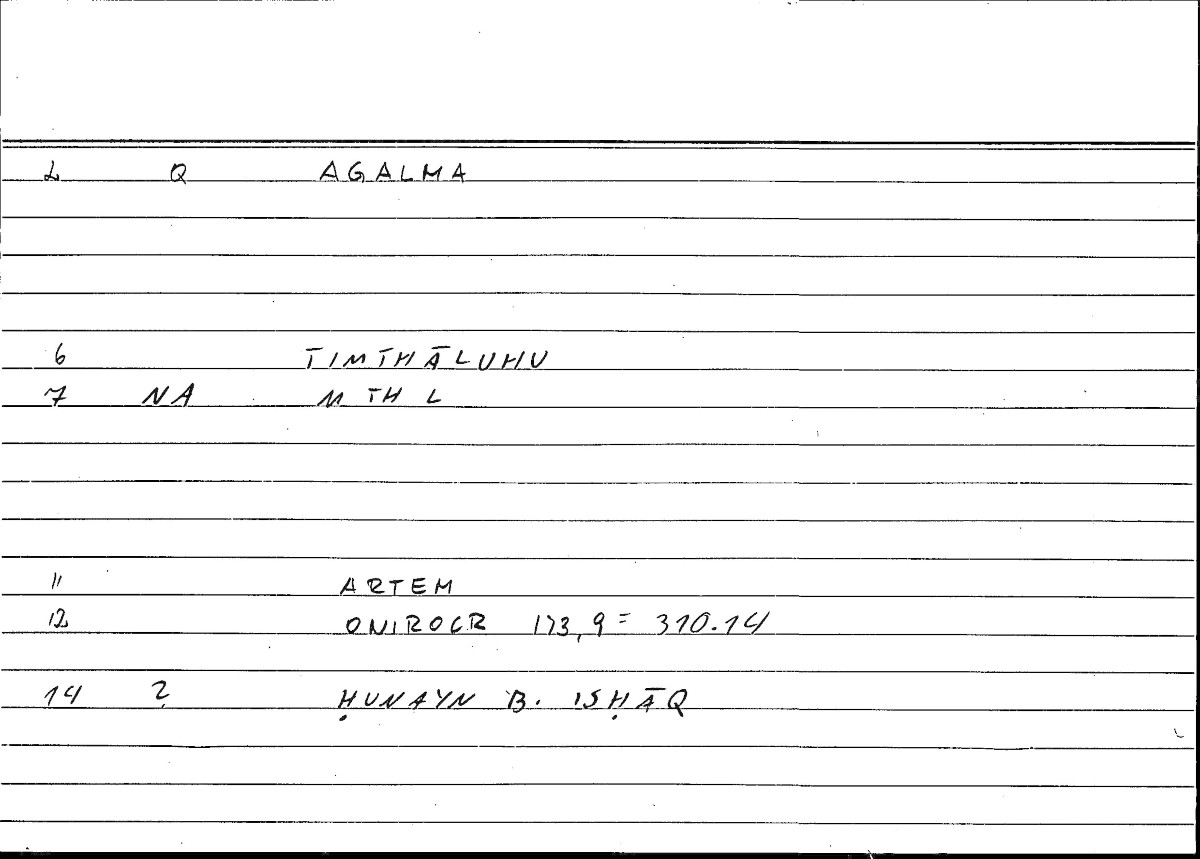 2 Q AGALMA
6 TIMTHĀLUHU
7 NA M TH L
11 ARTEM
12 ONIROCR 173,9 = 310.14
14 ? ḤUNAYN B. ISḤĀQ